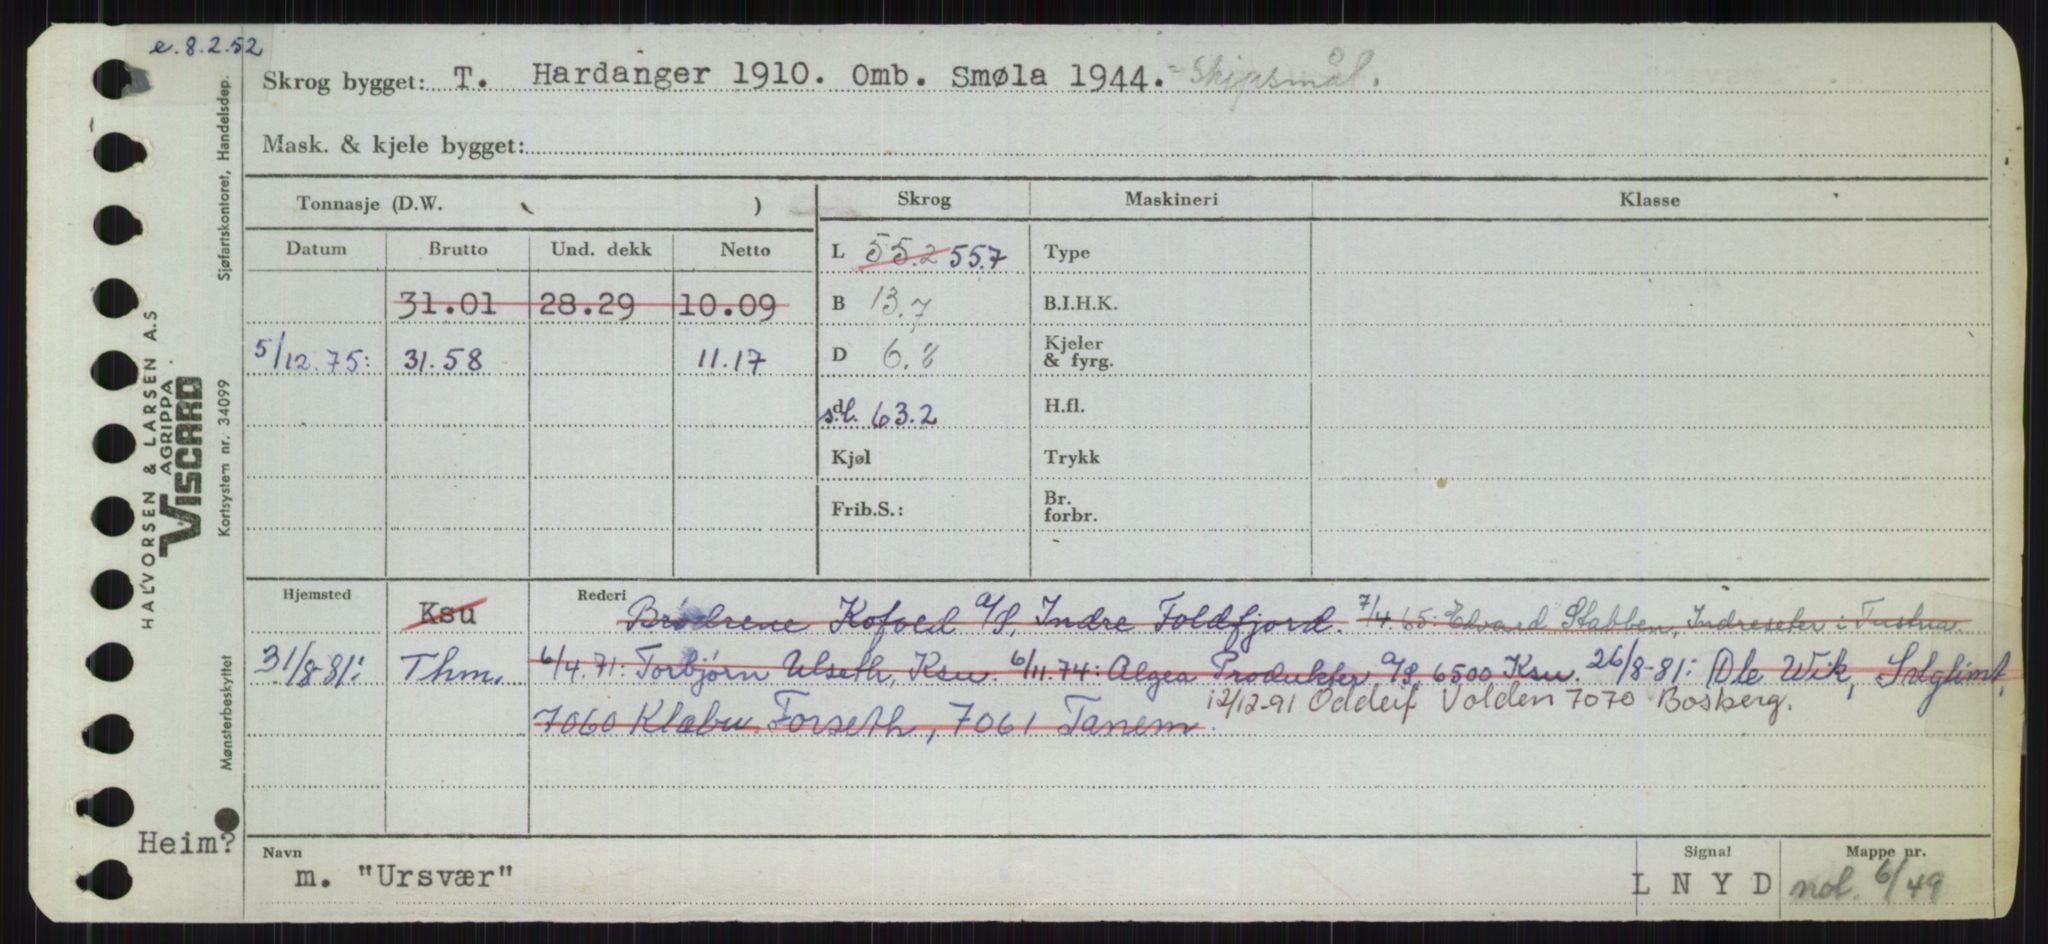 e. 8.2.52
Skrog bygget: T. Hardanger 1910. Omb. Smøla 1944. - Skipsmål.
Mask. & kjele bygget:
Tonnasje (D.W. )
Skrog
Maskineri
Klasse
Datum
Brutto
Und. dekk
Netto
L 55.2 55.7
Type
31.01 28.29 10.09
B 13.7
B.I.H.K.
5/12.75: 31.58 11.17
D 6.8
Kjeler
& fyrg.
d s.l. 63.2
H.fl.
Kjøl
Trykk
Frib.S.:
Br.
forbr.
Hjemsted
Ksu
Rederi
Brødrene Kofoed a/s, Indre Foldfjord. 7/4.65: Edvard Stabben, Indreseter i Tustna.
31/8-81: Thm. 6/4.71: Torbjørn Ulseth, Ksu. 6/11.74: Algea Produkter a/s 6500 Ksu. 26/8-81: Ole Wik, Solglimt,
7060 Klæbu. Forseth, 7061 Tanem. 12/12-91 Oddleif Volden 7070 Bosberg.
Heim?
Navn
m. "Ursvær"
Signal
L N Y D
Mappe nr.
nol. 6/49
HALVORSEN & LARSEN A.S
AGRIPPA
VISCARD
Mønsterbeskyttet Kortsystem nr. 34099 Sjøfartskontoret, Handelsdep.